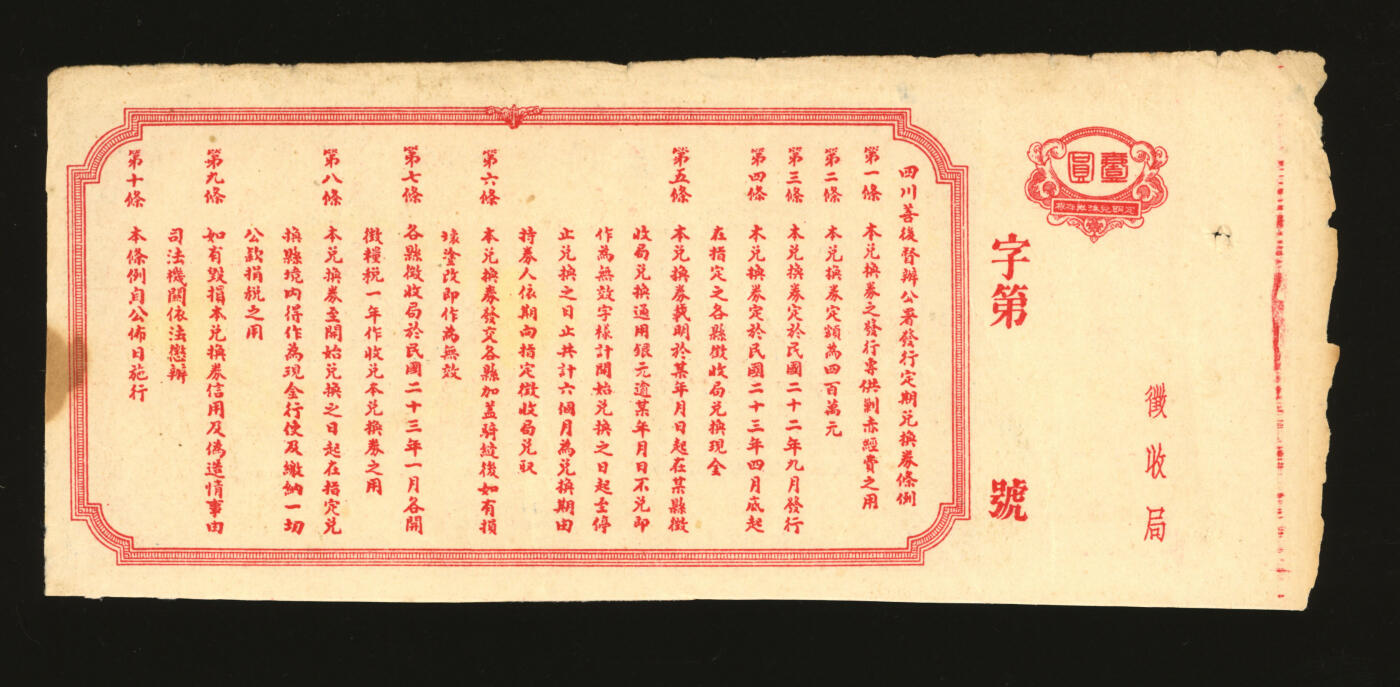 壹圓
定期兌換券存根
徵收局
字第 號
四川善後督辦公署發行定期兌換券條例
第一條 本兌換券之發行專供剿赤經費之用
第二條 本兌換券定額為四百萬元
第三條 本兌換券定於民國二十二年九月發行
第四條 本兌換券定於民國二十三年四月底起
在指定之各縣徵收局兌換現金
第五條 本兌換券載明於某年月日起在某縣徵
收局兌換通用銀元逾某年月日不兌即
作為無效字樣計開始兌換之日起至停
止兌換之日止共計六個月為兌換期由
持券人依期向指定徵收局兌取
第六條 本兌換券發交各縣加蓋騎縫後如有損
壞塗改即作為無效
第七條 各縣徵收局於民國二十三年一月各開
徵糧稅一年作收兌本兌換券之用
第八條 本兌換券至開始兌換之日起在指定兌
換縣境內得作為現金行使及繳納一切
公款捐稅之用
第九條 如有毀損本兌換券信用及偽造情事由
司法機關依法懲辦
第十條 本條例自公佈日施行